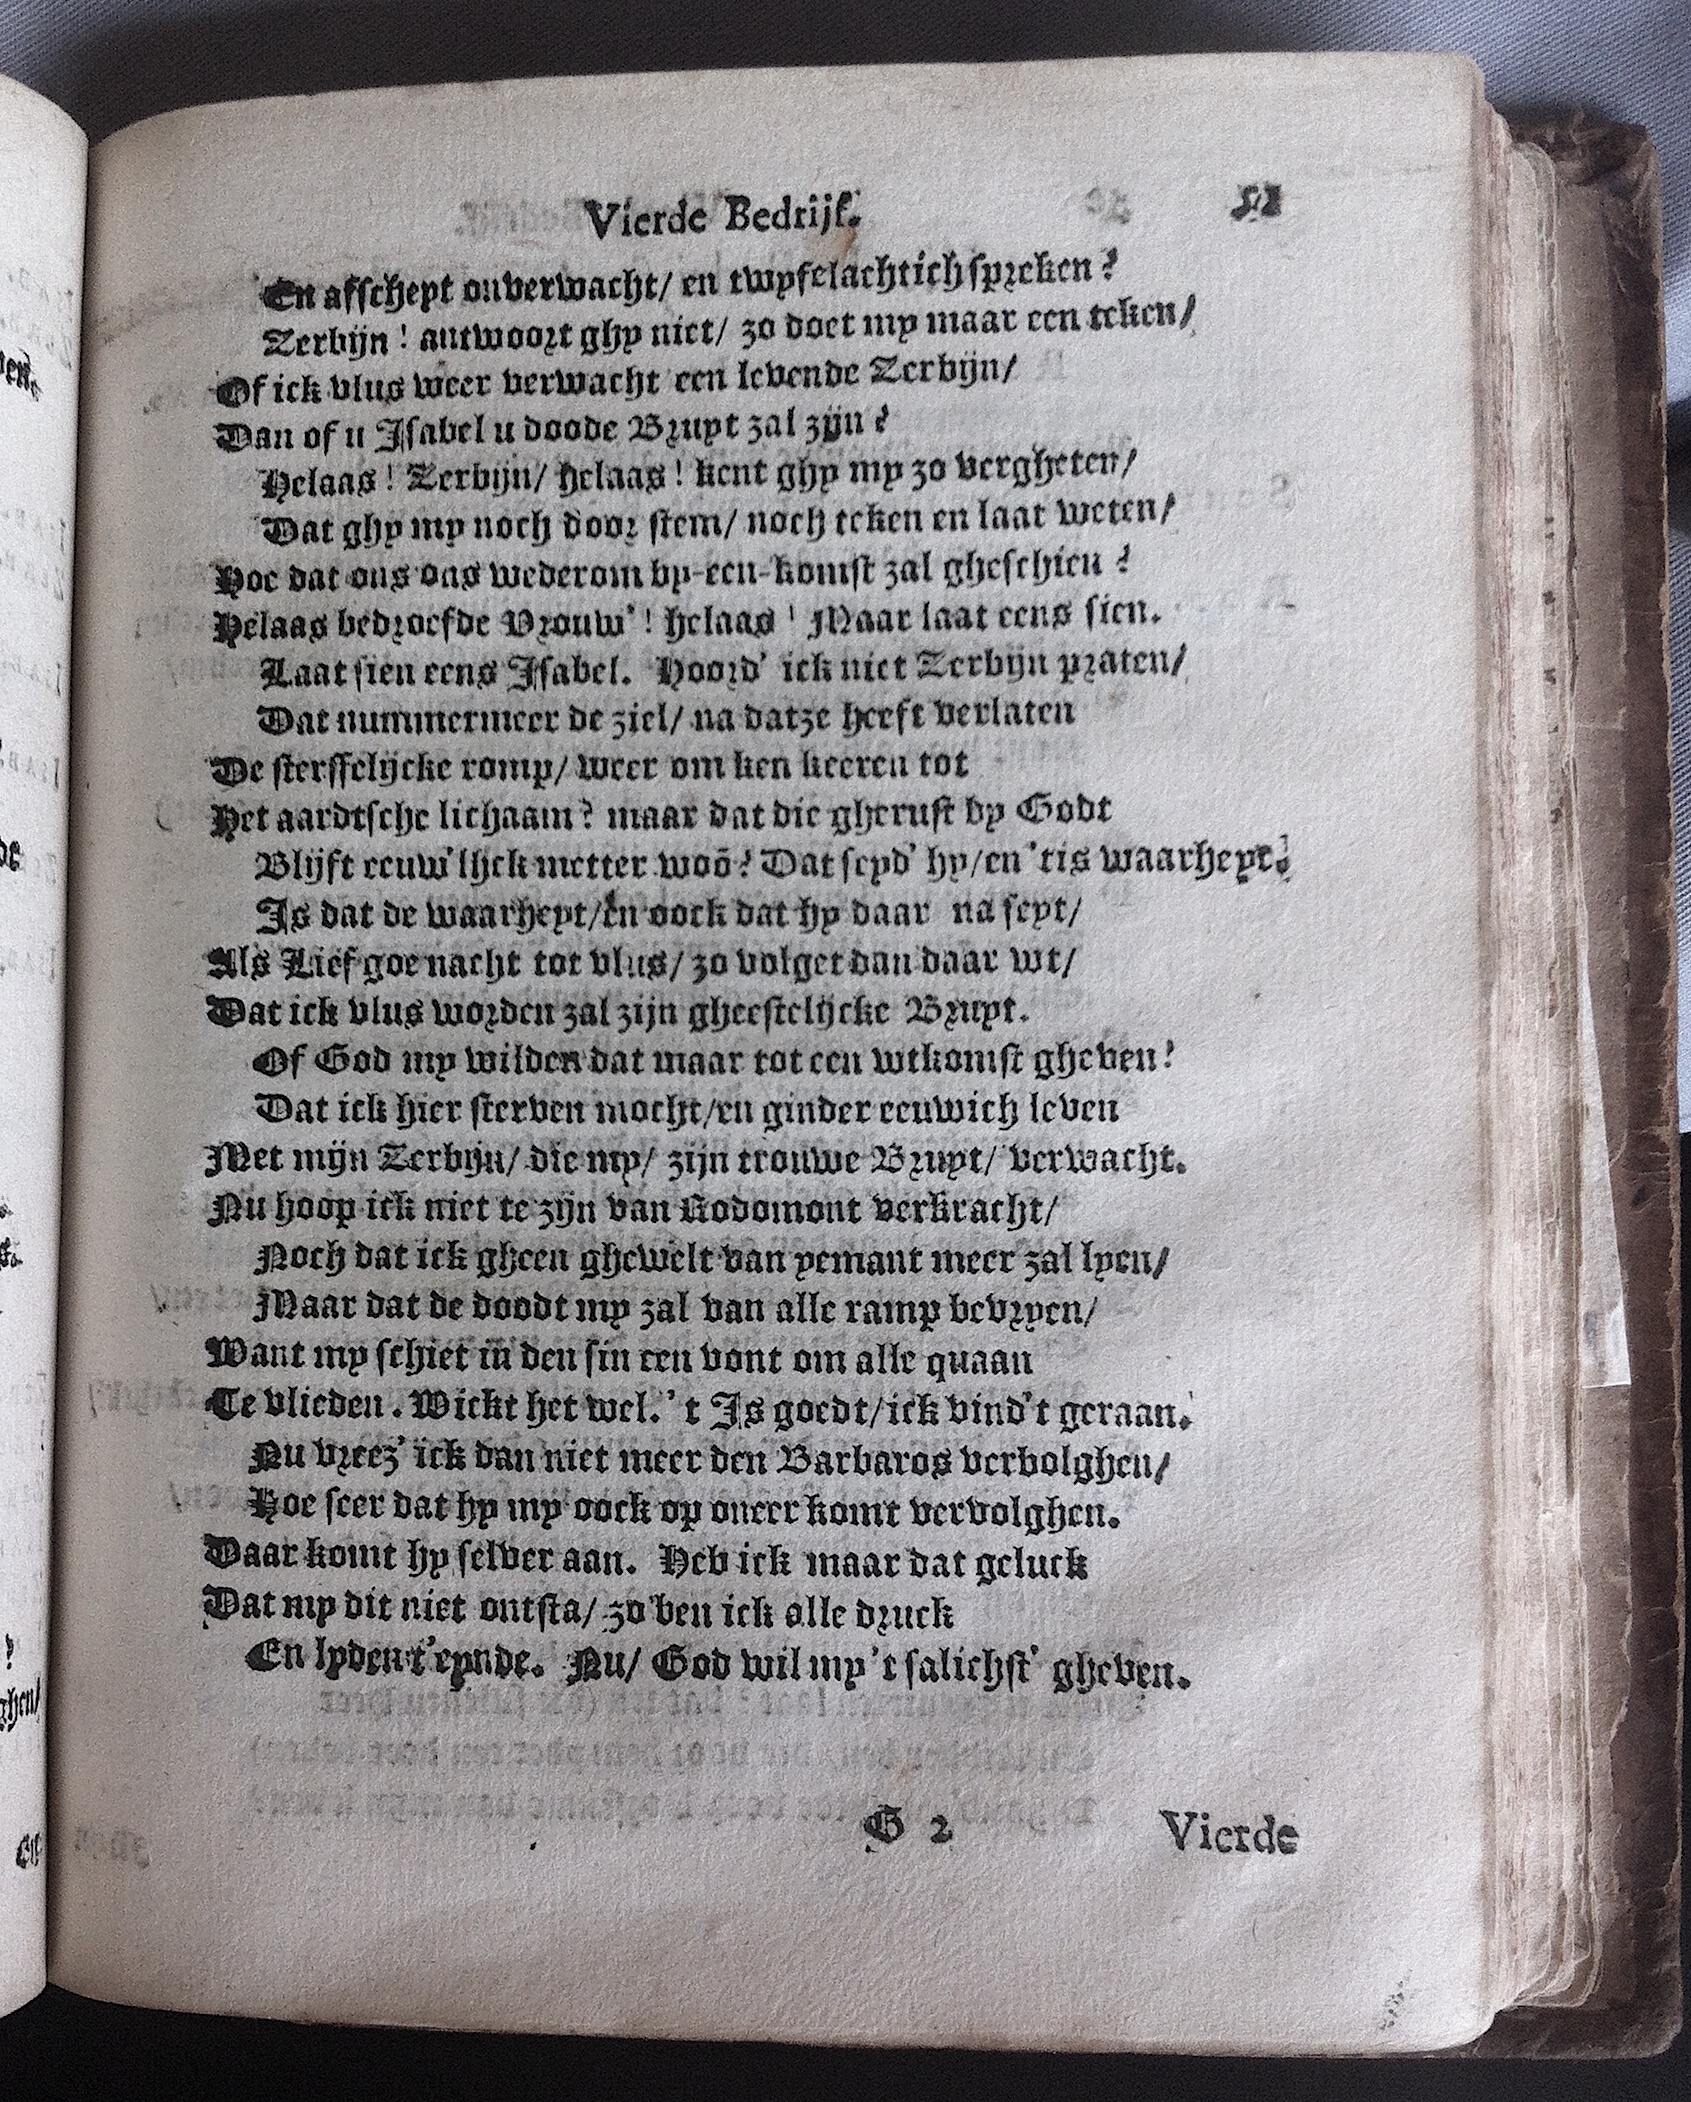 Vierde Bedrijf. 51
En afscheyt onverwacht/ en twyfelachtich spreken?
Zerbijn! antwoort ghy niet/ zo doet my maar een teken/
Of ick vlus weer verwacht een levende Zerbijn/
Dan of u Isabel u doode Bruyt zal zijn?
Helaas! Zerbijn/ helaas! kent ghy my zo vergheten/
Dat ghy my noch door stem/ noch teken en laat weten/
Hoe dat ons ons wederom by-een-komst zal gheschien?
Helaas bedroefde Vrouw'! helaas! Maar laat eens sien.
Laat sien eens Isabel. Hoord' ick niet Zerbijn praten/
Dat nummermeer de ziel/ na datze heeft verlaten
De sterffelijcke romp/ weer om ken keeren tot
Het aardtsche lichaam? maar dat die gherust by Godt
Blijft eeuw'lijck metter woõ? Dat seyd' hy/en 'tis waarheyt.
Is dat de waarheyt/En oock dat hy daar na seyt/
Als Lief goe nacht tot vlus/ zo volget dan daar wt/
Dat ick vlus worden zal zijn gheestelijcke Bruyt.
Of God my wilden dat maar tot een wtkomst gheven!
Dat ick hier sterven mocht/en ginder eeuwich leven
Met mijn Zerbijn/ die my/ zijn trouwe Bruyt/ verwacht.
Nu hoop ick niet te zijn van Rodomont verkracht/
Noch dat ick gheen ghewelt van yemant meer zal lyen/
Maar dat de doodt my zal van alle ramp bevryen/
Want my schiet in den sin een vont om alle quaan
Te vlieden. Wickt het wel. 't Is goedt/ick vind't geraan.
Nu vreez' ick dan niet meer den Barbaros verbolghen/
Hoe seer dat hy my oock op oneer komt vervolghen.
Daar komt hy selver aan. Heb ick maar dat geluck
Dat my dit niet ontsta/ zo ben ick alle druck
En lyden t'eynde. Nu/ God wil my 't salichst' gheven.
G 2 Vierde